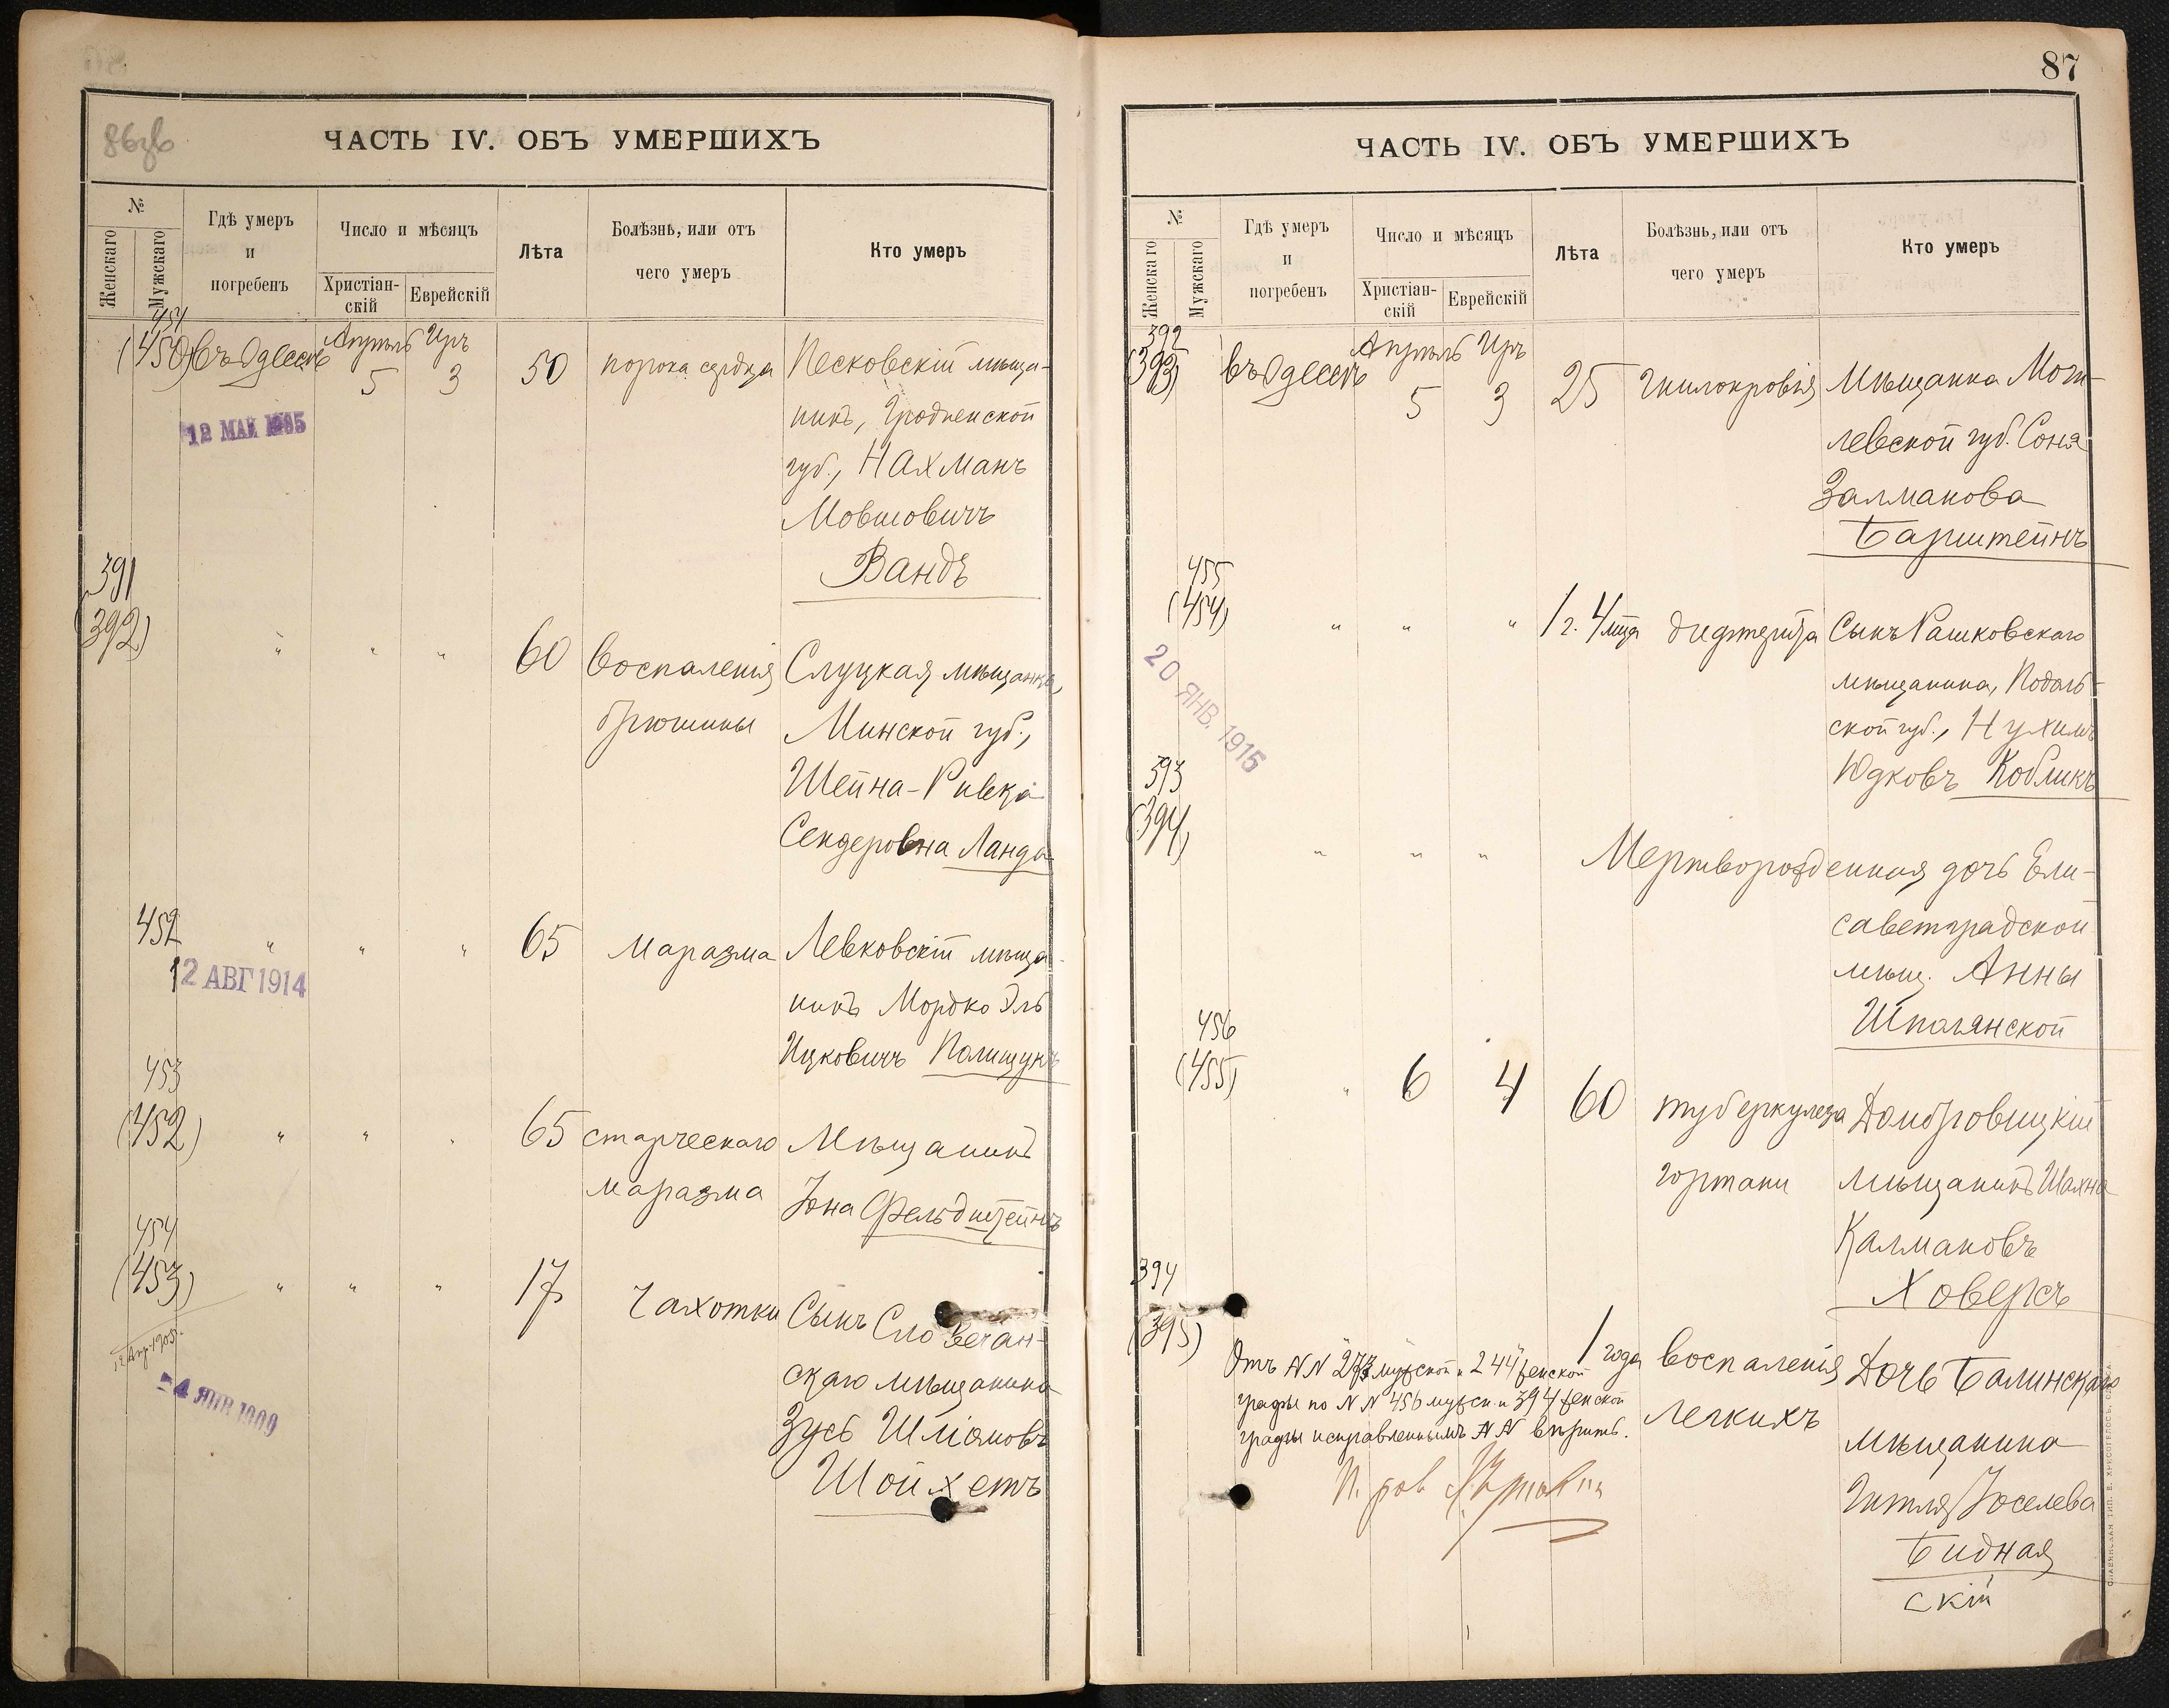 86об
ЧАСТЬ IV. ОБЪ УМЕРШИХЪ
№
Женскаго
Мужскаго
Гдѣ умеръ
и
погребенъ
Число и мѣсяцъ
Христіан-
скій
Еврейскій
Лѣта
Болѣзнь, или отъ
чего умеръ
Кто умеръ
451
(450) въ Одессѣ Апрѣль 5 Иръ 3 50 порока сердца Песковскій мѣща-
нинъ, Гродненской
губ., Нахманъ
Мовшовичъ
Вандъ
12 МАЙ
391
(392) " " " 60 воспаленія Слуцкая мѣщанка,
брюшины Минской губ.,
Шейна-Ривка
Сендеровна Ланда
452 " " " 65 маразма Левковскій мѣща-
нинъ Мордко Эль
Ицковичъ Полищукъ
12 АВГ 1914
453
(452) " " " 65 старческаго Мѣщанинъ
маразма Іона Фельдштейнъ
454
(453) " " " 17 чахотки Сынъ Словечан-
скаго мѣщанина
Зусь Шліомовъ
Шойхетъ
12 Апр. 1905.
87
ЧАСТЬ IV. ОБЪ УМЕРШИХЪ
№
Женскаго
Мужскаго
Гдѣ умеръ
и
погребенъ
Число и мѣсяцъ
Христіан-
скій
Еврейскій
Лѣта
Болѣзнь, или отъ
чего умеръ
Кто умеръ
392
(393) въ Одессѣ Апрѣль 5 Иръ 3 25 гнилокровія Мѣщанка Моги-
левской губ. Соня
Залманова
Барштейнъ
455
(454) " " " 1 г. 4 мца дифтерита Сынъ Рашковскаго
мѣщанина, Подоль-
ской губ., Нухимъ
Юдковъ Кобликъ
20 ЯНВ. 1915
393
(394) " " " Мертворожденная дочь Ели-
саветградской
мѣщ. Анны
Шполянской
456
(455) " 6 4 60 туберкулеза Домбровицкій
гортани мѣщанинъ Шахна
Калмановъ
Ховерсъ
394
(395) 1 года воспаленія Дочь Балинскаго
легкихъ мѣщанина
Гитля Іоселева
Бидная
скій
Отъ NN 273 мужской и 244 женской
графы по NN 456 мужск. и 394 женской
графы исправленнымъ NN вѣрить.